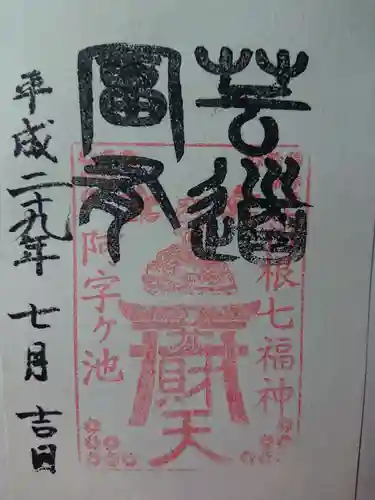 芸道
富有
根七福神
弁財天
阿字ヶ池
平成二十九年 七月 吉日